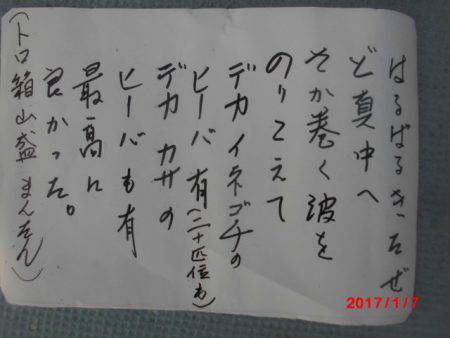 はるばるきたぜ
ど真中へ
さか巻く波を
のりこえて
デカイネゴチの
ヒーバ有(二十匹位も)
デカカサの
ヒーバも有
最高に
良かった。
(トロ箱山盛まんたん)
2017/1/7